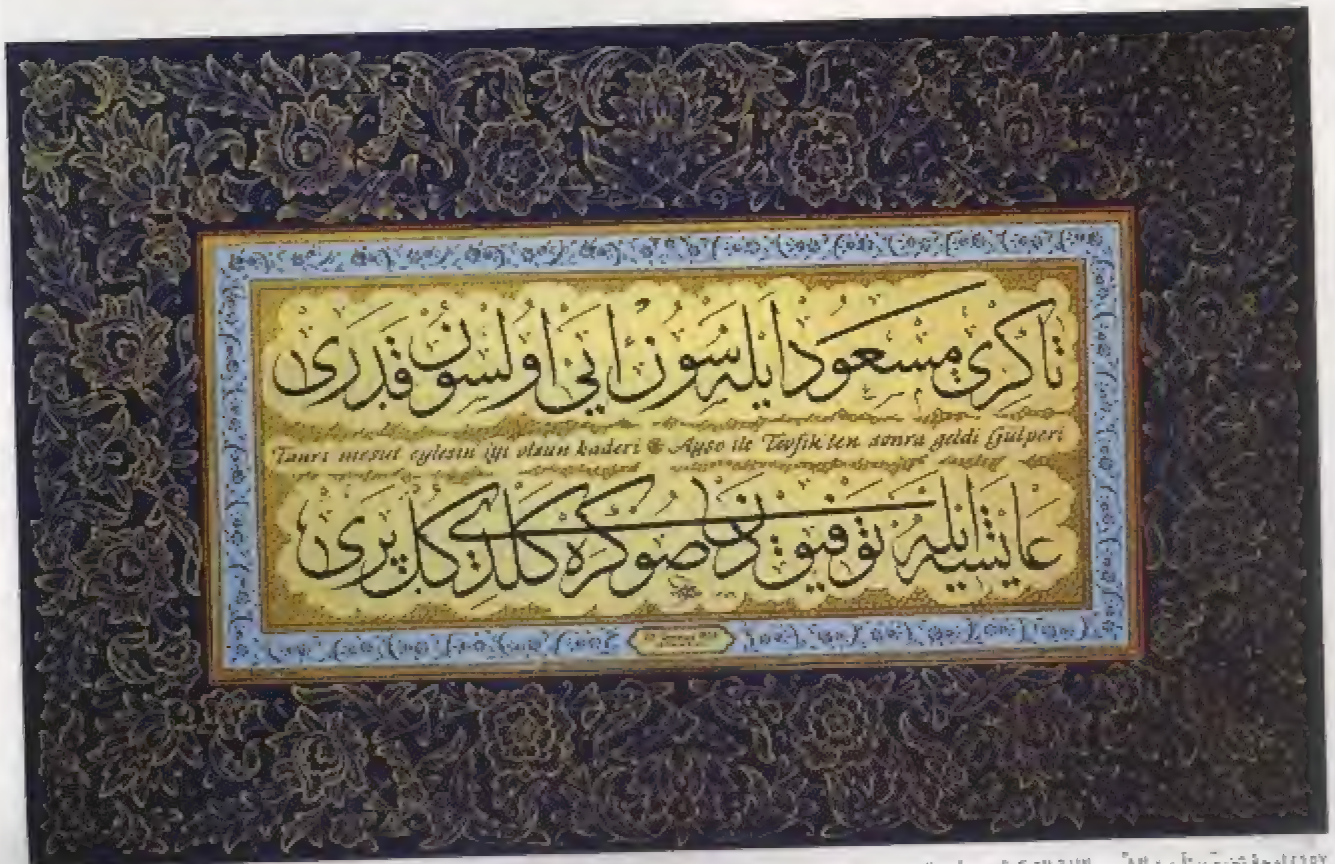 تاكرى مسعود ايله سون ايى اولسون قدرى
Tanrı mesut eylesin iyi olsun kaderi Ayşe ile Tevfik'ten sonra geldi Gülperi
عايشه ايله توفيق دن صوكره كلدى كل پرى